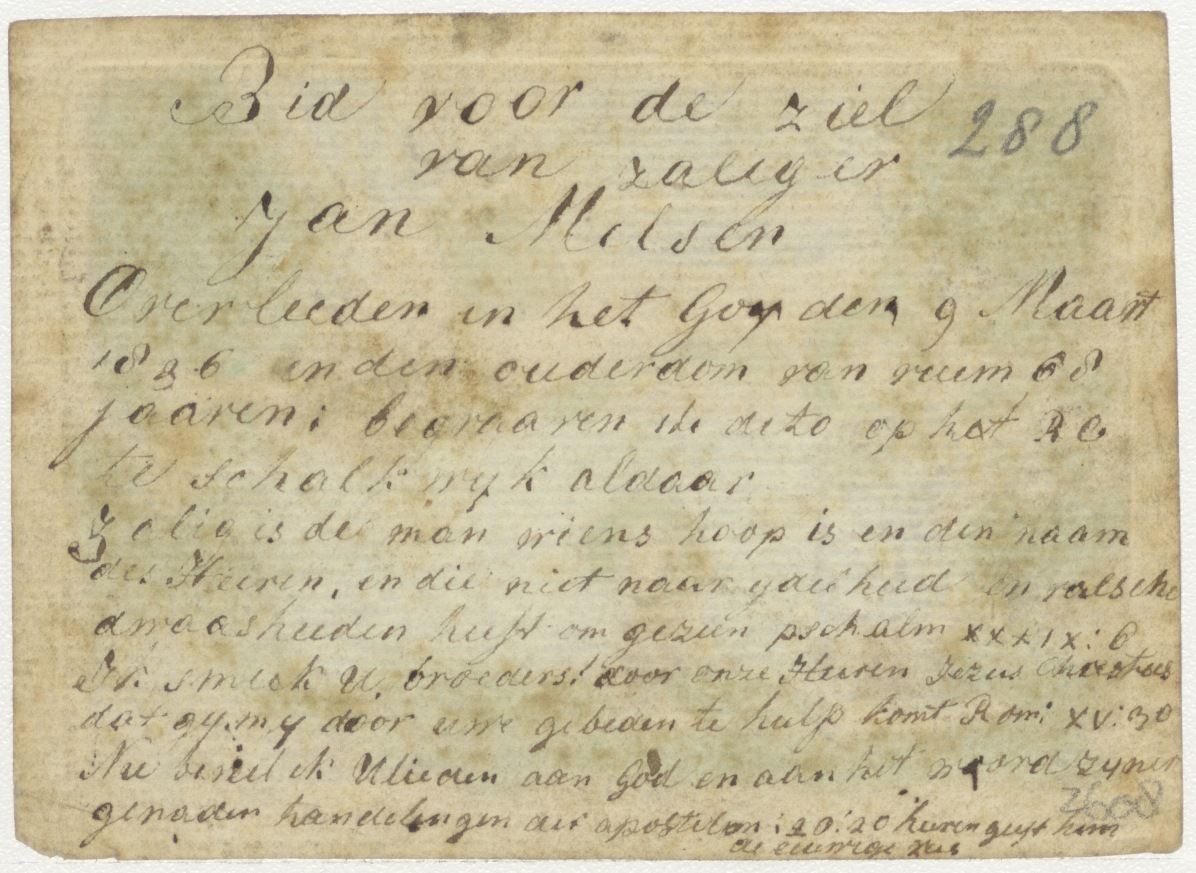 Bid voor de ziel
288
van zaliger
Jan Melsen
Overleeden in het Goy den 9 Maart
1836 in den ouderdom van ruim 68
jaaren: begraaven in dito op het R C
te schalkwyk aldaar
Zalig is de man wiens hoop is en den naam
des Heeren, en die niet naar ydelheid en valsche
dwaasheeden heeft om gezien pschalm xxxix: 6
Ik smeek U, broeders! door onze Heeren Jezus Christus
dat gy my door uwe gebeden te hulp komt Rom: xv: 30
Nu beveel ik Ulieden aan God en aan het woord zyner
genaden handelingen der apostelen: 20: 20 heere geeft hem
de eeuwige rus
2608